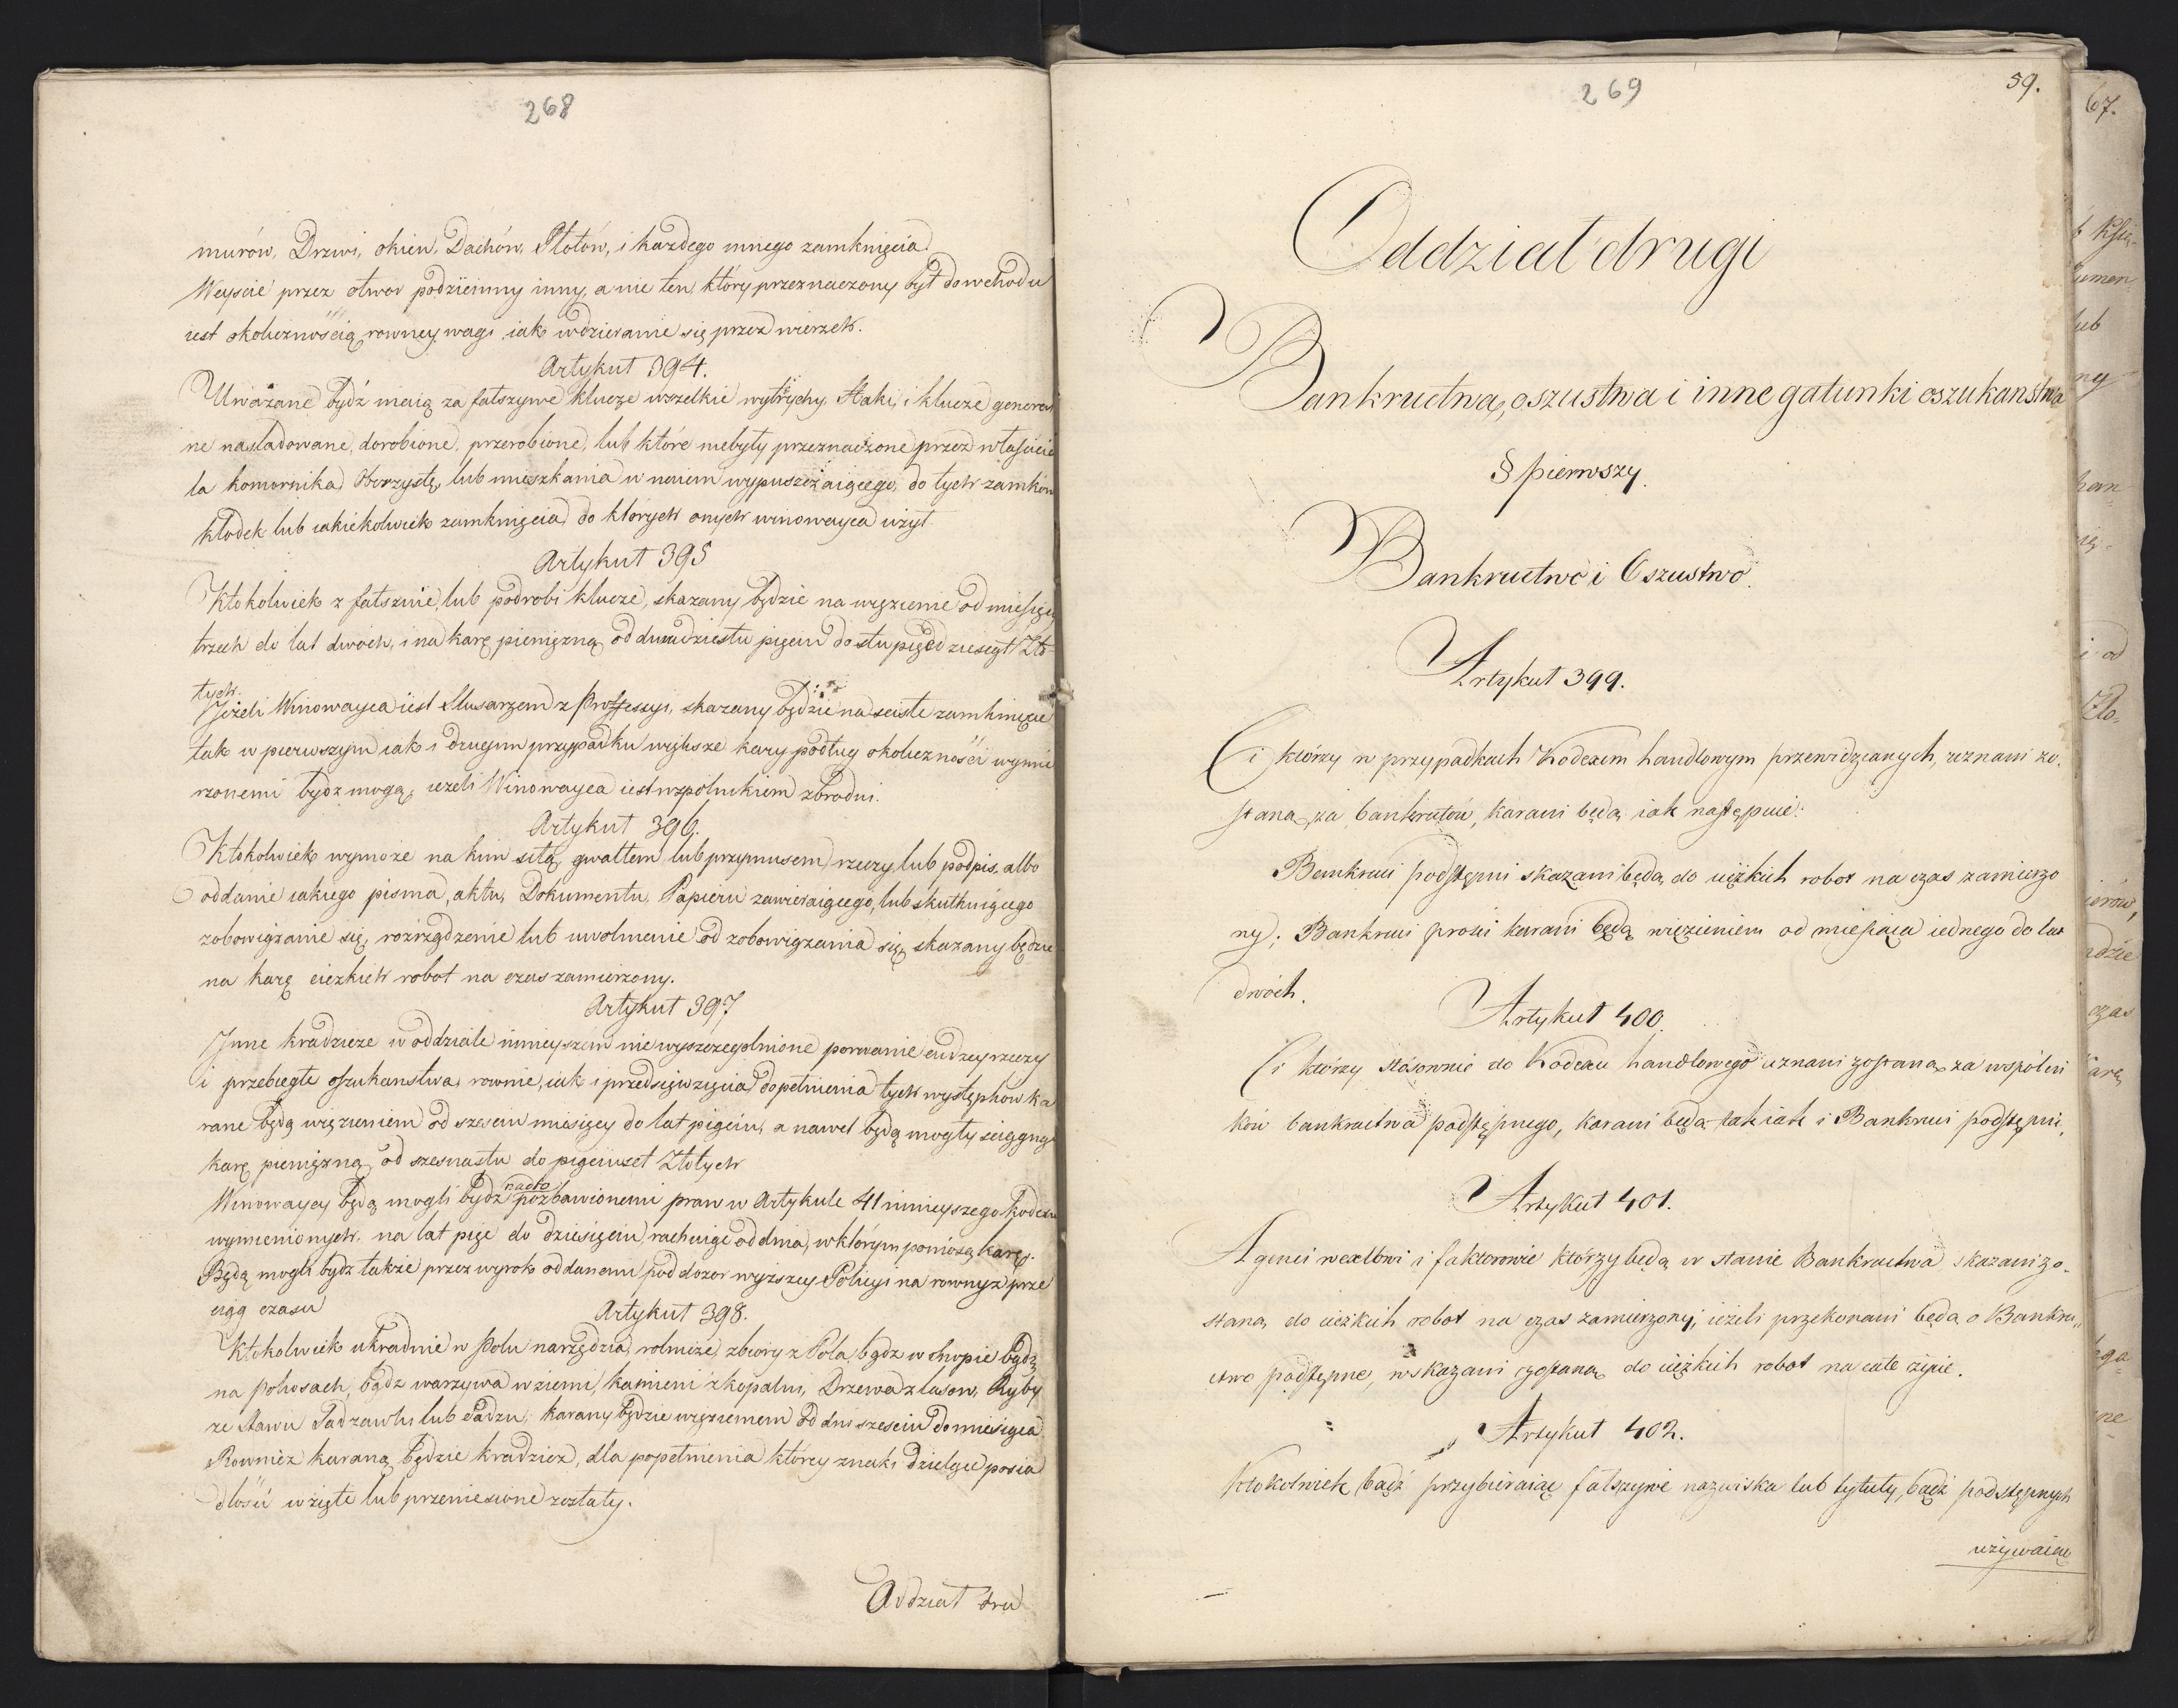 268
murów, Drzwi, okien, Dachów, Płotów, i każdego innego zamknięcia
Weyscie przez otwor podziemny inny, a nie ten który przeznaczony był do wchodu
iest okolicznością rowney wagi iak wdzieranie się przez wierzch.
Artykuł 394.
Uważane bydź maią za fałszywe klucze wszelkie wytrychy, Haki, i klucze general
ne nasladowane, dorobione, przerobione, lub które niebyły przeznaczone przez własicie
la komornika Oberzystę, lub mieszkania w naiem wypuszczaiącego, do tych zamków
kłodek lub iakiekolwiek zamknięcia do których onych winowayca użył
Artykuł 395
Ktokolwiek z fałszuie, lub podrobi klucze, skazany będzie na więzienie od miesięcy
trzech do lat dwóch, i na karę pieniężną od dwudziestu pięciu do stu pięćdziesiąt Zło-
tych.
Jeżeli Winowayca iest Slusarzem z Professyi, skazany będzie na scisłe zamknięcie
tak w pierwszym iak i drugim przypadku większe kary podług okoliczności wymie
rzonemi bydz mogą, ieżeli Winowayca iest wspolnikiem zbrodni.
Artykuł 396.
Ktokolwiek wymoże na kim siłą, gwałtem, lub przymusem rzeczy, lub podpis, albo
oddanie iakiego pisma, aktu, Dokumentu, Papieru zawieraiącego, lub skutkuiącego
zobowiązanie się, rozrządzenie lub uwolnienie od zobowiązania się, skazany będzie
na karę ciezkich robot na czas zamierzony.
Artykuł 397
Jnne kradzieze w oddziale ninieyszem nie wyszczegolnione porwanie cudzey rzeczy
i przebiegłe oszukanstwa, rownie, iak i przedsięwzięcia dopełnienia tych występkow ka
rane będą więzieniem od szesciu miesięcy do lat pięciu, a nawet będą mogły sciągnąć
karę pieniężną, od szesnastu do pięciuset Złotych
Winowaycy będą mogli bydz nadto pozbawionemi praw w Artykule 41 ninieyszego Kodexu
wymienionych. na lat pięć do dziesięciu, rachuiąc od dnia, w którym poniosą karę.
Będą mogli bydz także przez wyrok oddanemi pod dozor wyższey Policyi na rownyż prze
ciąg czasu
Artykuł 398.
Ktokolwiek ukradnie w Polu narzędzia, rolnicze, zbiory z Pola, bądz w snopie bądz
na pokosach, bądz warzywa w ziemi, kamieni z kopalni, Drzewa z lasow, Ryby
ze Stawu Sadzawki lub Sadzu; karany będzie więzieniem od dni szesciu do miesiąca
Rownież karaną będzie kradzież, dla popełnienia którey znaki dzielące posia
dłość wzięte lub przeniesione zostały.
Oddział dru
269
59.
Oddział drugi
Bankructwa, oszustwa i inne gatunki oszukanstwa
§ pierwszy.
Bankructwo i Oszustwo.
Artykuł 399.
Ci którzy w przypadkach Kodexem handlowym przewidzianych, uznani zo-
staną za bankrutów, karani będą iak następuie:
Bankruci podstępni skazani będą do ciężkich robot na czas zamierzo
ny; Bankruci prości karani będą więzieniem od miesiąca iednego do lat
dwóch.
Artykuł 400.
Ci którzy stósownie do Kodexu handlowego uznani zostaną za wspólni
ków bankructwa podstępnego, karani będą tak iak i Bankruci podstępni.
Artykuł 401.
Agenci wexlowi i faktorowie którzy będą w stanie Bankructwa skazani zo-
staną do ciężkich robot na czas zamierzony; ieżeli przekonani będą o Bankru-
ctwo podstępne, wskazani zostaną do ciężkich robot na całe życie.
Artykuł 402.
Ktokolwiek bądź przybieraiąc fałszywe nazwiska lub tytuły, bądź podstępnych
używaiąc
67.
lub
ny
i od
Zło-
ierów,
ndzie
czas
karę